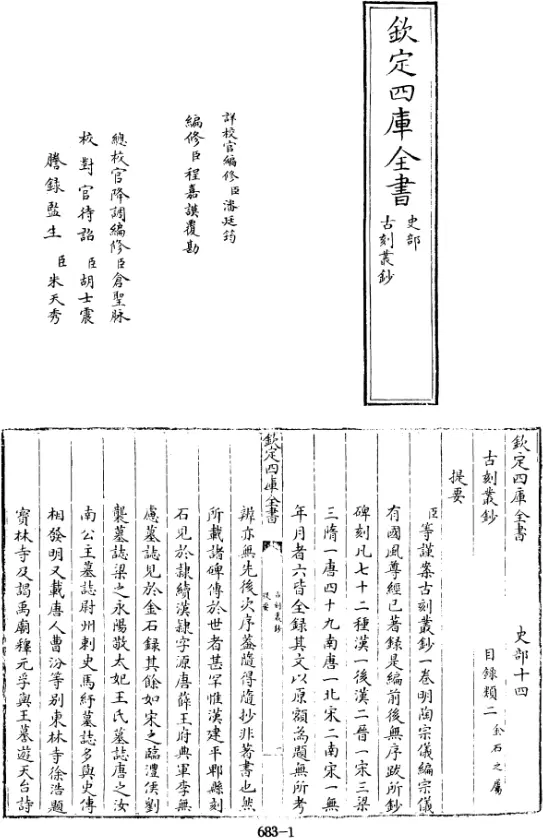 欽定四庫全書
史部
古刻叢鈔
詳校官編修臣潘廷筠
編修臣程嘉謨覆勘
總校官降調編修臣倉聖脉
校對官待詔臣胡士震
謄錄監生臣朱天秀
欽定四庫全書 史部十四
古刻叢鈔 目錄類二 金石之屬
提要
臣等謹案古刻叢鈔一卷明陶宗儀編宗儀
有國風尊經已著録是編前後無序跋所鈔
碑刻凡七十二種漢一後漢二晉一宋三梁
三隋一唐四十九南唐一北宋二南宋一無
年月者六皆全録其文以原額為題無所考
欽定四庫全書
古刻叢鈔
提要
一
辨亦無先後次序蓋隨得隨抄非著書也然
所載諸碑傳於世者甚罕惟漢建平郫縣刻
石見於隷續漢隷字源唐薛王府典軍李無
慮墓誌見於金石録其餘如宋之臨澧侯劉
襲墓誌梁之永陽敬太妃王氏墓誌唐之汝
南公主墓誌尉州刺史馬紓墓誌多與史傳
相發明又載唐人曹汾等别東林寺徐浩題
寳林寺及謁禹廟穆元孚與王墓遊天台詩
683-1